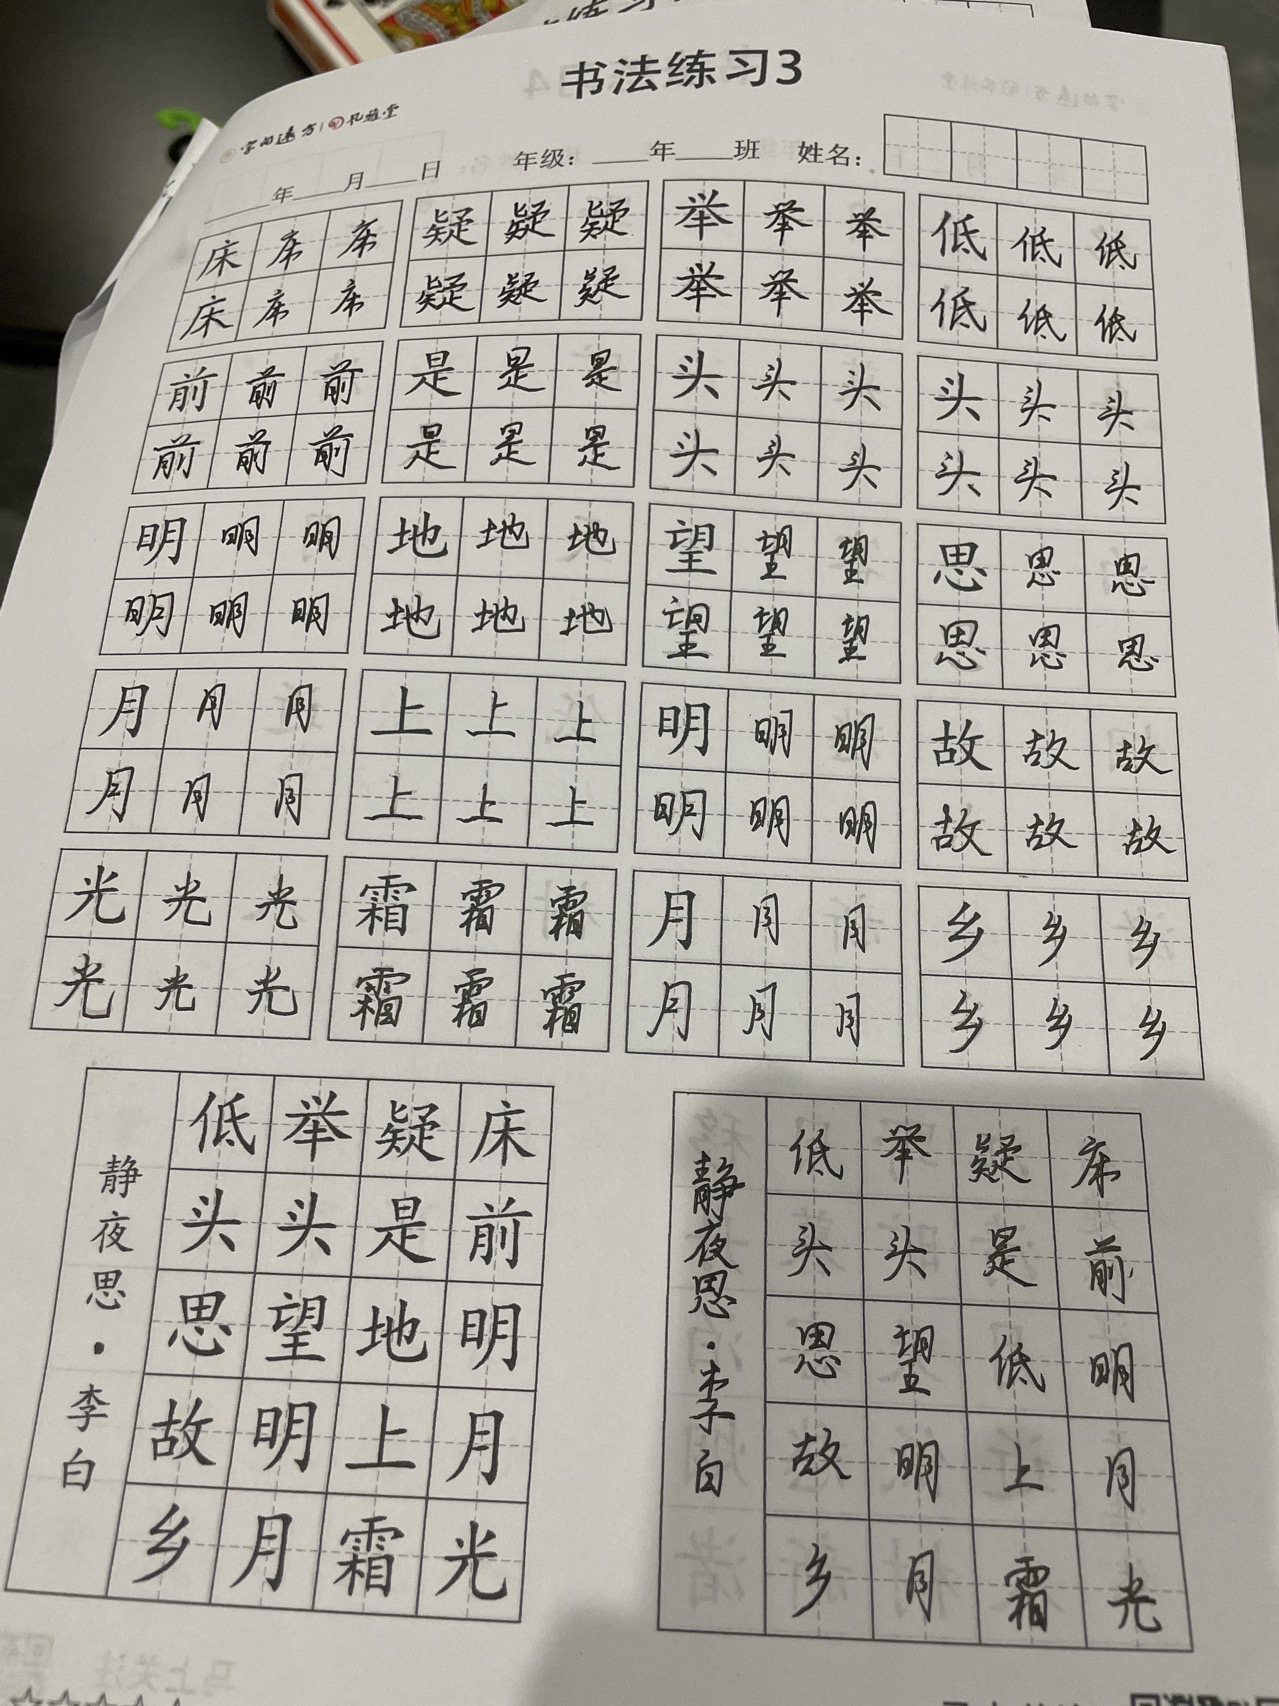 书法练习3
字的远方 礼雅堂
年 月 日 年级： 年 班 姓名：
床 床 床 疑 疑 疑 举 举 举 低 低 低
床 床 床 疑 疑 疑 举 举 举 低 低 低
前 前 前 是 是 是 头 头 头 头 头 头
前 前 前 是 是 是 头 头 头 头 头 头
明 明 明 地 地 地 望 望 望 思 思 思
明 明 明 地 地 地 望 望 望 思 思 思
月 月 月 上 上 上 明 明 明 故 故 故
月 月 月 上 上 上 明 明 明 故 故 故
光 光 光 霜 霜 霜 月 月 月 乡 乡 乡
光 光 光 霜 霜 霜 月 月 月 乡 乡 乡
床前明月光
疑是地上霜
举头望明月
低头思故乡
静夜思·李白
床前明月光
疑是低上霜
举头望明月
低头思故乡
静夜思·李白